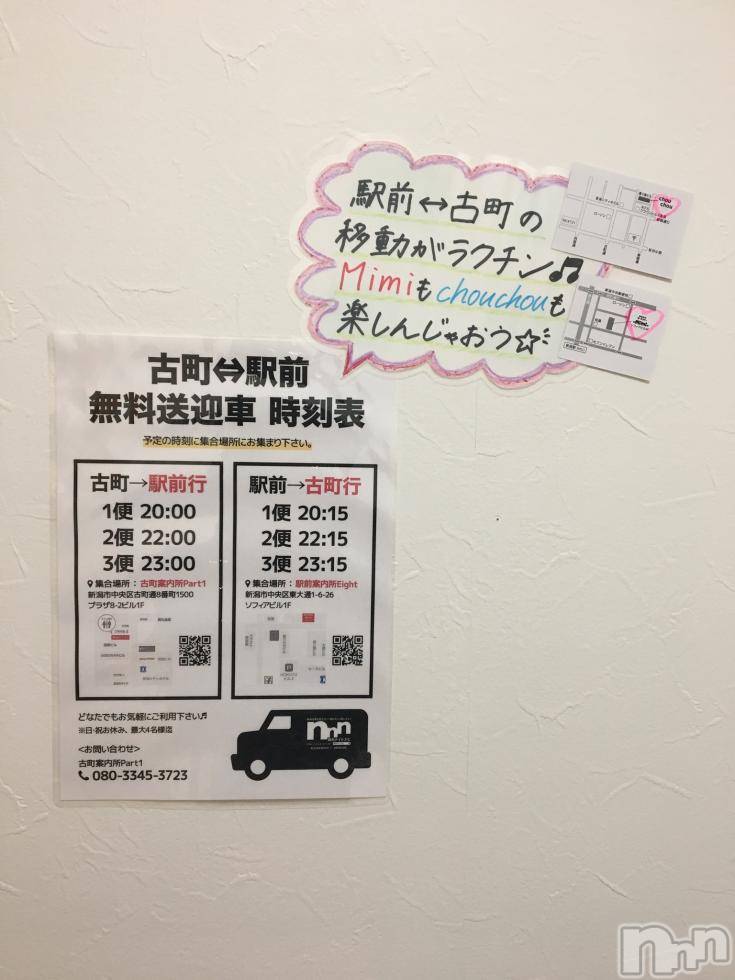 駅前↔古町の
移動がラクチン♫
Mimiもchouchouも
楽しんじゃおう☆
chou
chou
ローソン
古町⇔駅前
無料送迎車 時刻表
予定の時刻に集合場所にお集まり下さい。
古町→駅前行
1便 20:00
2便 22:00
3便 23:00
集合場所： 古町案内所Part1
新潟市中央区古町通8番町1500
プラザ8-2ビル1F
駅前→古町行
1便 20:15
2便 22:15
3便 23:15
集合場所： 駅前案内所Eight
新潟市中央区東大通1-6-26
ソフィアビル1F
どなたでもお気軽にご利用下さい♬
※日·祝お休み、最大4名様迄
<お問い合わせ>
古町案内所Part1
080-3345-3723
nnn
nnn